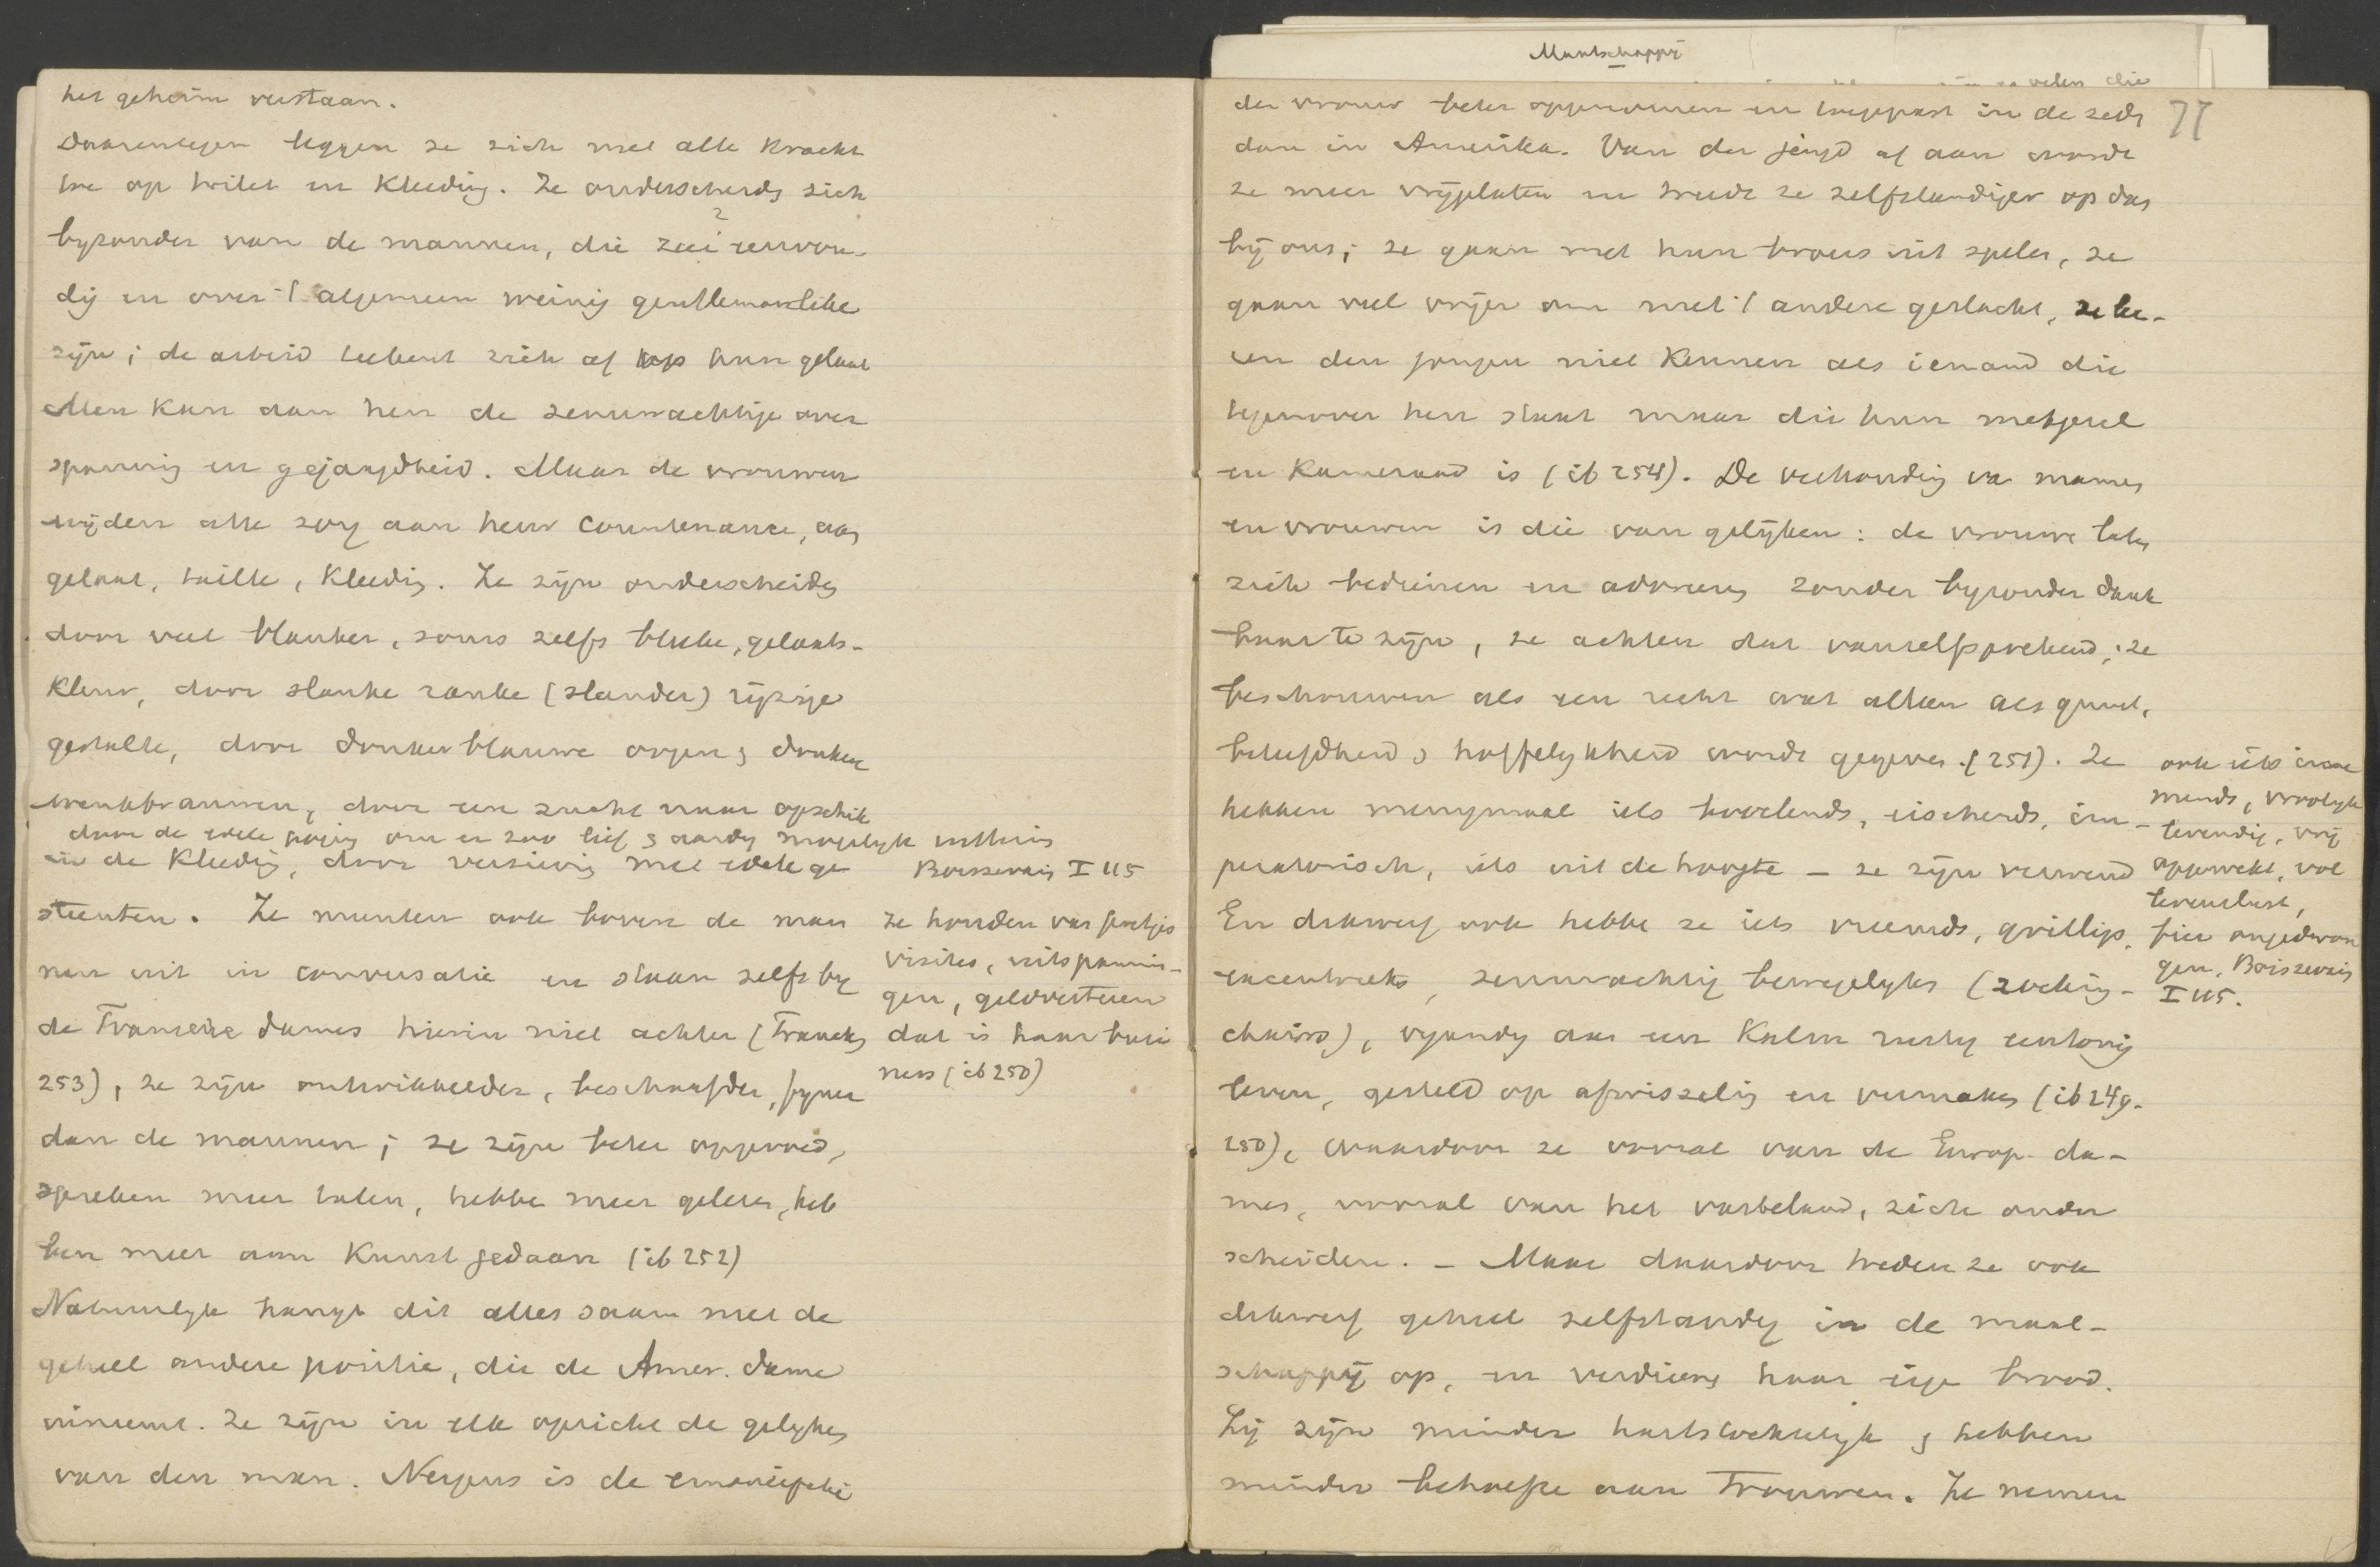 het geheim verstaan.
Daarentegen leggen ze zich met alle kracht
toe op toilet en kleeding. Ze onderscheiden zich
byzonder van de mannen, die zeer eenvou-
dig en over 't algemeen weinig gentlemanlike
zijn; de arbeid teekent zich af op hun gelaat
Men kan aan hen de zenuwachtige over
spanning en gejaagdheid. Maar de vrouwen
wijden alle zorg aan heur countenance, aan
gelaat, taille, kleeding. Ze zijn onderscheiden
door veel blanker, soms zelfs bleeke, gelaats-
kleur, door slanke ranke (slander) rijzige
gestalte, door donkerblauwe oogen & donkere
wenkbrauwen, door een zucht naar opschik
door de edele poging om er zoo lief & aardig mogelyk uit te zien
in de kleeding, door versiering met edele ge
steenten.
Boissevain I 115
Ze munten ook boven de man
nen uit in conversatie en staan zelfs by
de Fransche dames hierin niet achter (Francks
253), ze zijn ontwikkelder, beschaafder, fyner
dan de mannen; ze zijn beter opgevoed,
spreken meer talen, hebben meer gelezen, heb
ben meer aan kunst gedaan (ib 252)
Ze houden van feestjes
visites, uitspannin-
gen, geldverteren
dat is haar busi
ness (ib 250)
Natuurlyk hangt dit alles saam met de
geheel andere positie, die de Amer. dame
inneemt. Ze zijn in elk opzicht de gelyken
van den man. Nergens is de emancipatie
Maatschappij
77
der vrouw beter opgenomen en toegepast in de zeden
dan in Amerika. Van der jeugd af aan worden
ze meer vrijgelaten en treden ze zelfstandiger op dan
bij ons; ze gaan met hun broers uit spelen, ze
gaan veel vrijer om met 't andere geslacht, ze lee-
ren den jongen niet kennen als iemand die
tegenover hen staat maar die hun metgezel
en kameraad is (ib 254). De verhouding van mannen
en vrouwen is die van gelijken: de vrouwen laten
zich bedienen en adoreeren zonder byzonder dank
baar te zijn, ze achten dat vanzelfsprekend; ze
beschouwen als een recht wat alleen als gunst,
beleefdheid & hoffelykheid wordt gegeven (251). Ze
hebben menigmaal iets bevelends, eischends, im-
peratorisch, iets uit de hoogte – ze zijn verwend
En dikwerf ook hebben ze iets vreemds, grilligs,
excentrieks, zenuwachtig bewegelyks (rocking-
chairs), vyandig aan een kalm rustig eentonig
leven, gesteld op afwisseling en vermaken (ib 249.
250), waardoor ze vooral van de Europ. da-
mes, vooral van het vasteland, zich onder
scheiden. – Maar daardoor treden ze ook
dikwerf geheel zelfstandig in de maat-
schappij op, en verdienen haar eigen brood.
Zij zijn minder hartstochtelyk & hebben
minder behoefte aan trouwen. Ze nemen
ook iets inne
mends, vroolyk
levendig, vrij
opgewekt, vol
levenslust,
fier ongedwon
gen. Boissevain
I 115.